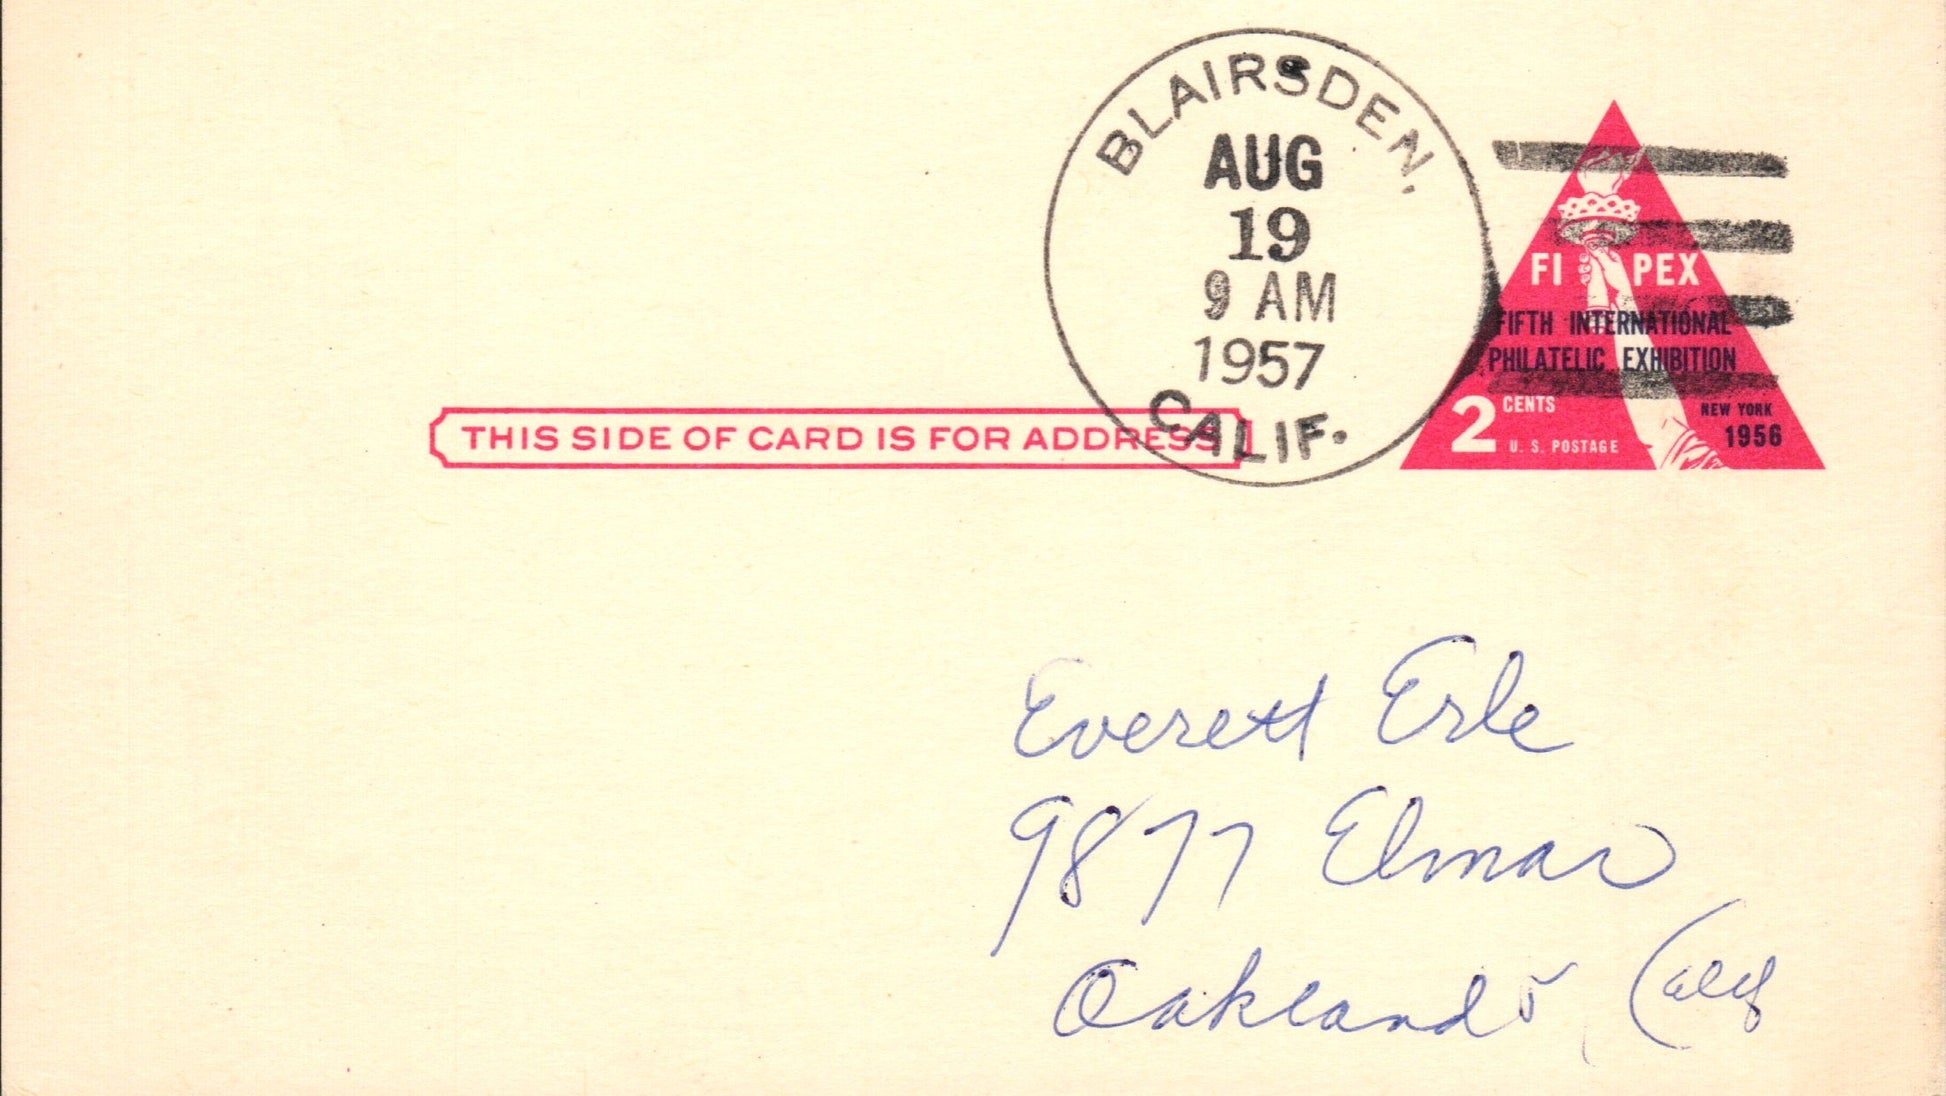 BLAIRSDEN,
AUG
19
9 AM
1957
CALIF.
FIPEX
FIFTH INTERNATIONAL
PHILATELIC EXHIBITION
2 CENTS
U. S. POSTAGE
NEW YORK
1956
THIS SIDE OF CARD IS FOR ADDRESS
Everett Erle
9877 Elmar
Oakland 5 Calif